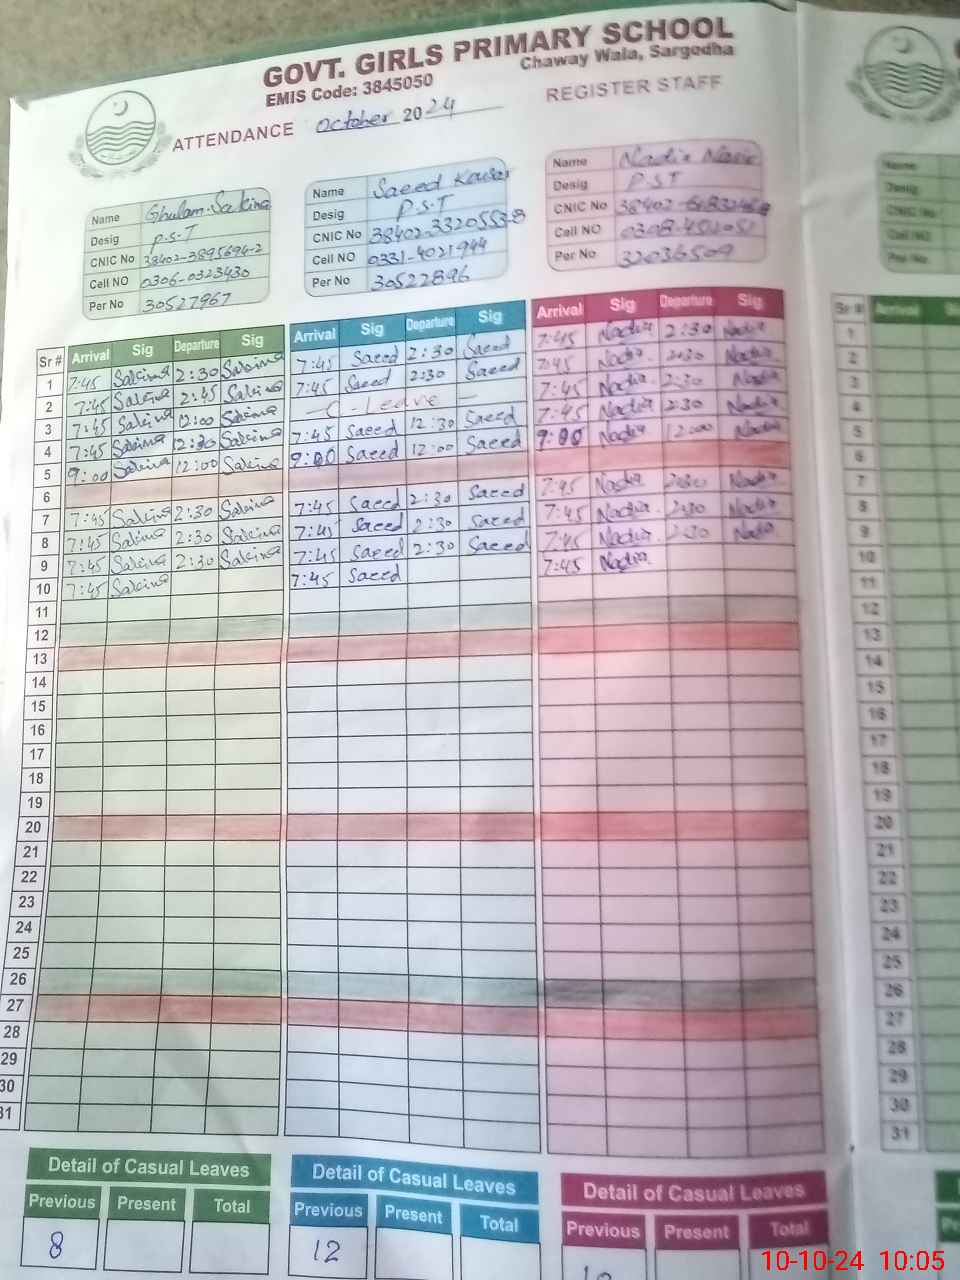 GOVT. GIRLS PRIMARY SCHOOL
EMIS Code: 3845050
Chaway Wala, Sargodha
ATTENDANCE October 2024
REGISTER STAFF
Name Ghulam Sakina
Desig P.S.T
CNIC No 38402-3895694-2
Cell NO 0306-0323430
Per No 30527967
Name Saeed Kousar
Desig P.S.T
CNIC No 38402-3320553-8
Cell NO 0331-4021944
Per No 30522896
Name Nadia
Desig P.S.T
CNIC No
Cell NO
Per No 32036509
Sr # Arrival Sig Departure Sig Arrival Sig Departure Sig Arrival Sig Departure Sig
1 7:45 Sakina 2:30 Sakina 7:45 Saeed 2:30 Saeed 7:45 Nadia 2:30 Nadia
2 7:45 Sakina 2:45 Sakina 7:45 Saeed 2:30 Saeed 7:45 Nadia 2:30 Nadia
3 7:45 Sakina 12:00 Sakina C-Leave 7:45 Nadia 2:30 Nadia
4 7:45 Sakina 12:30 Sakina 7:45 Saeed 12:30 Saeed 7:45 Nadia 2:30 Nadia
5 9:00 Sakina 12:00 Sakina 9:00 Saeed 12:00 Saeed 9:00 Nadia 12:00 Nadia
6
7 7:45 Sakina 2:30 Sakina 7:45 Saeed 2:30 Saeed 7:45 Nadia 2:30 Nadia
8 7:45 Sakina 2:30 Sakina 7:45 Saeed 2:30 Saeed 7:45 Nadia 2:30 Nadia
9 7:45 Sakina 2:30 Sakina 7:45 Saeed 2:30 Saeed 7:45 Nadia 2:30 Nadia
10 7:45 Sakina 7:45 Saeed 7:45 Nadia
11
12
13
14
15
16
17
18
19
20
21
22
23
24
25
26
27
28
29
30
31
Detail of Casual Leaves
Previous Present Total
8
Detail of Casual Leaves
Previous Present Total
12
Detail of Casual Leaves
Previous Present Total
Name
Desig
CNIC No
Cell NO
Per No
Sr # Arrival
1
2
3
4
5
6
7
8
9
10
11
12
13
14
15
16
17
18
19
20
21
22
23
24
25
26
27
28
29
30
31
10-10-24 10:05